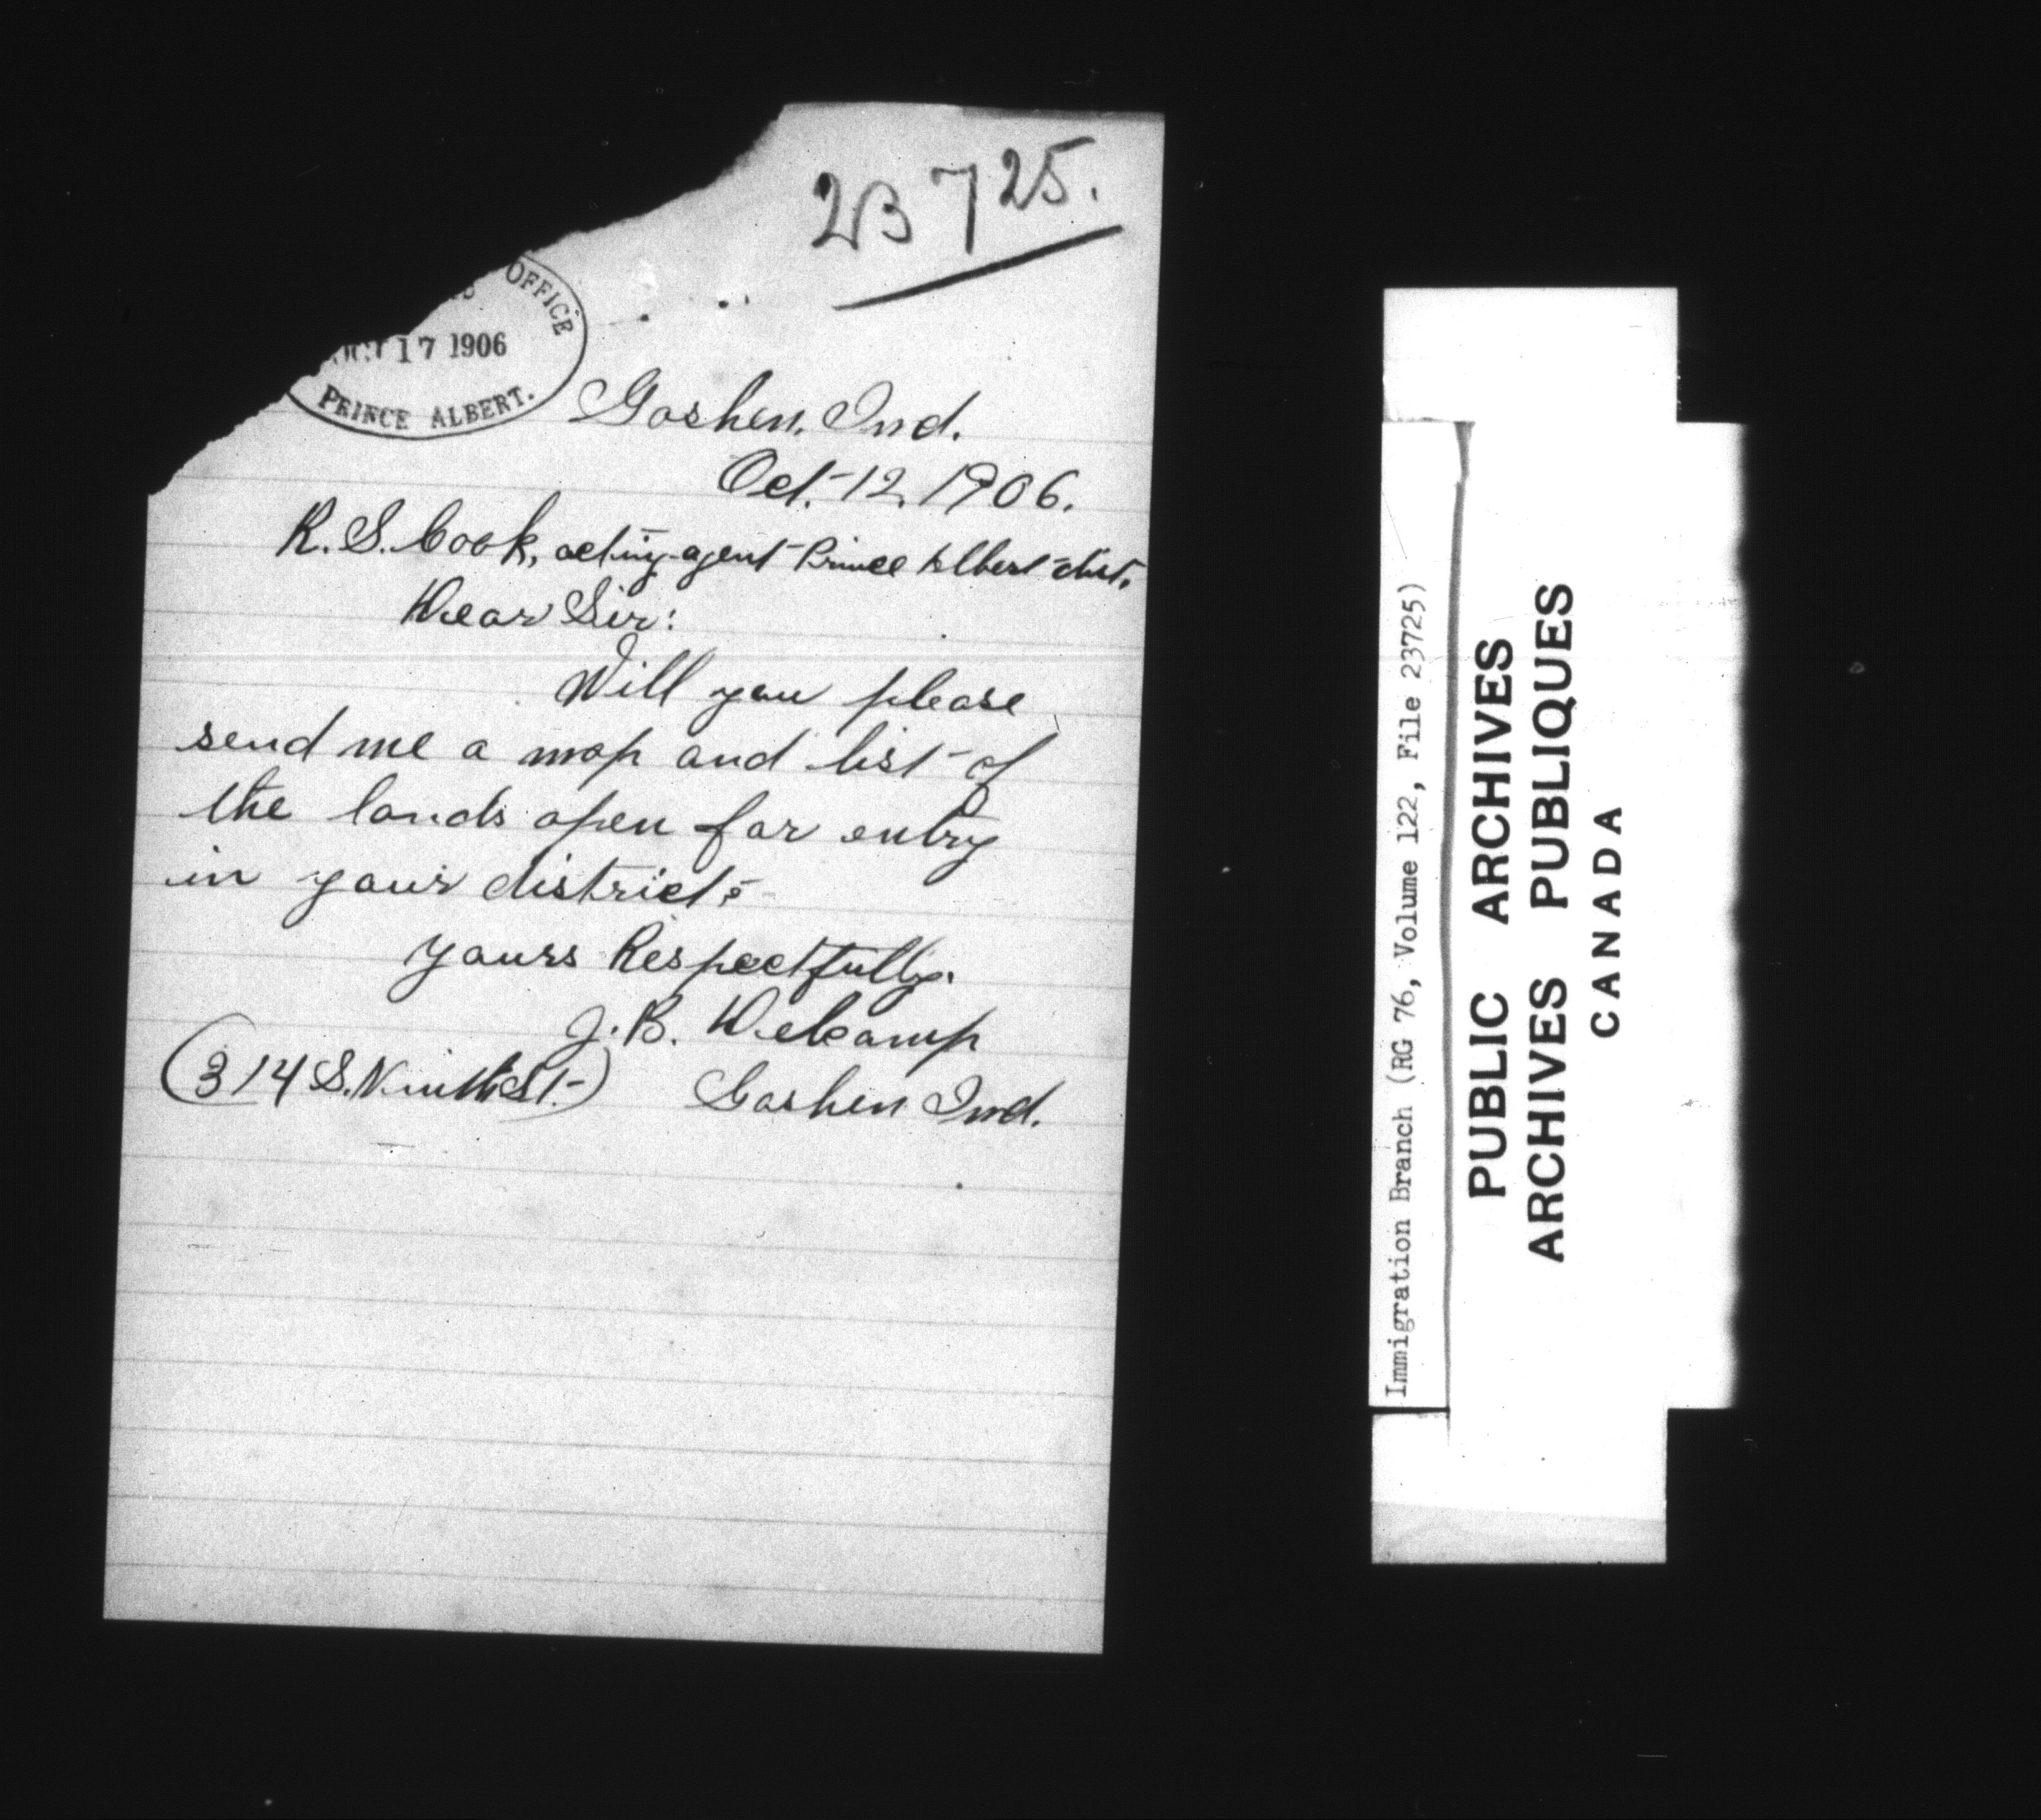 23725.
OFFICE
OCT 17 1906
PRINCE ALBERT.
Goshen, Ind.
Oct. 12, 1906.
R. S. Cook, acting agent Prince Albert dist.
Dear Sir:
Will you please
send me a map and list of
the lands open for entry
in your district?
Yours Respectfully.
J. B. Welcamp
(314 S. Ninth St.) Goshen Ind.
Immigration Branch (RG 76, Volume 122, File 23725)
PUBLIC ARCHIVES
ARCHIVES PUBLIQUES
CANADA